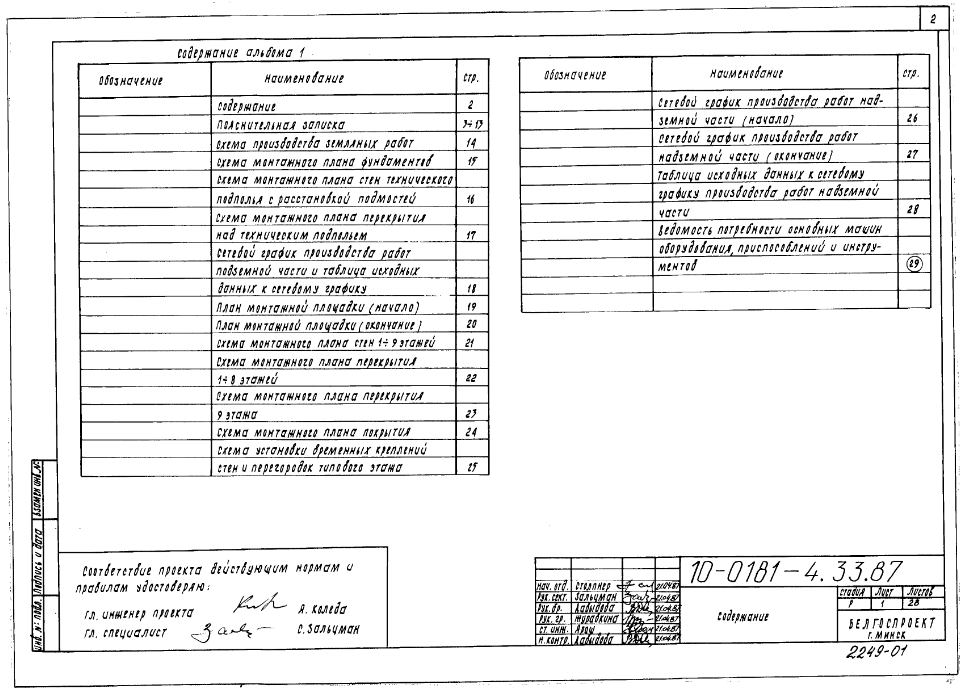 2
Содержание альбома 1
Обозначение Наименование стр.
Содержание 2
Пояснительная записка 3÷13
Схема производства земляных работ 14
Схема монтажного плана фундаментов 15
Схема монтажного плана стен технического
подполья с расстановкой подмостей 16
Схема монтажного плана перекрытия
над техническим подпольем 17
Сетевой график производства работ
подземной части и таблица исходных
данных к сетевому графику 18
План монтажной площадки (начало) 19
План монтажной площадки (окончание) 20
Схема монтажного плана стен 1÷9 этажей 21
Схема монтажного плана перекрытия
1÷8 этажей 22
Схема монтажного плана перекрытия
9 этажа 23
Схема монтажного плана покрытия 24
Схема установки временных креплений
стен и перегородок типового этажа 25
Обозначение Наименование стр.
Сетевой график производства работ над-
земной части (начало) 26
Сетевой график производства работ
надземной части (окончание) 27
Таблица исходных данных к сетевому
графику производства работ надземной
части 28
Ведомость потребности основных машин
оборудования, приспособлений и инстру-
ментов 29
Соответствие проекта действующим нормам и
правилам удостоверяю:
гл. инженер проекта А. Коледа
гл. специалист С. Зальцман
Инв. № подл. Подпись и дата Взамен инв. №
Нач. отд. 21.04.87
Рук. сект. Зальцман 21.04.87
Рук. бр. Давыдова 21.04.87
Рук. гр. Журавкина 21.04.87
Ст. инж. Ярош 21.04.87
Н. контр. Давыдова 21.04.87
10-0181-4.33.87
Содержание
стадия Лист Листов
Р 1 28
БЕЛГОСПРОЕКТ
г. Минск
2249-01